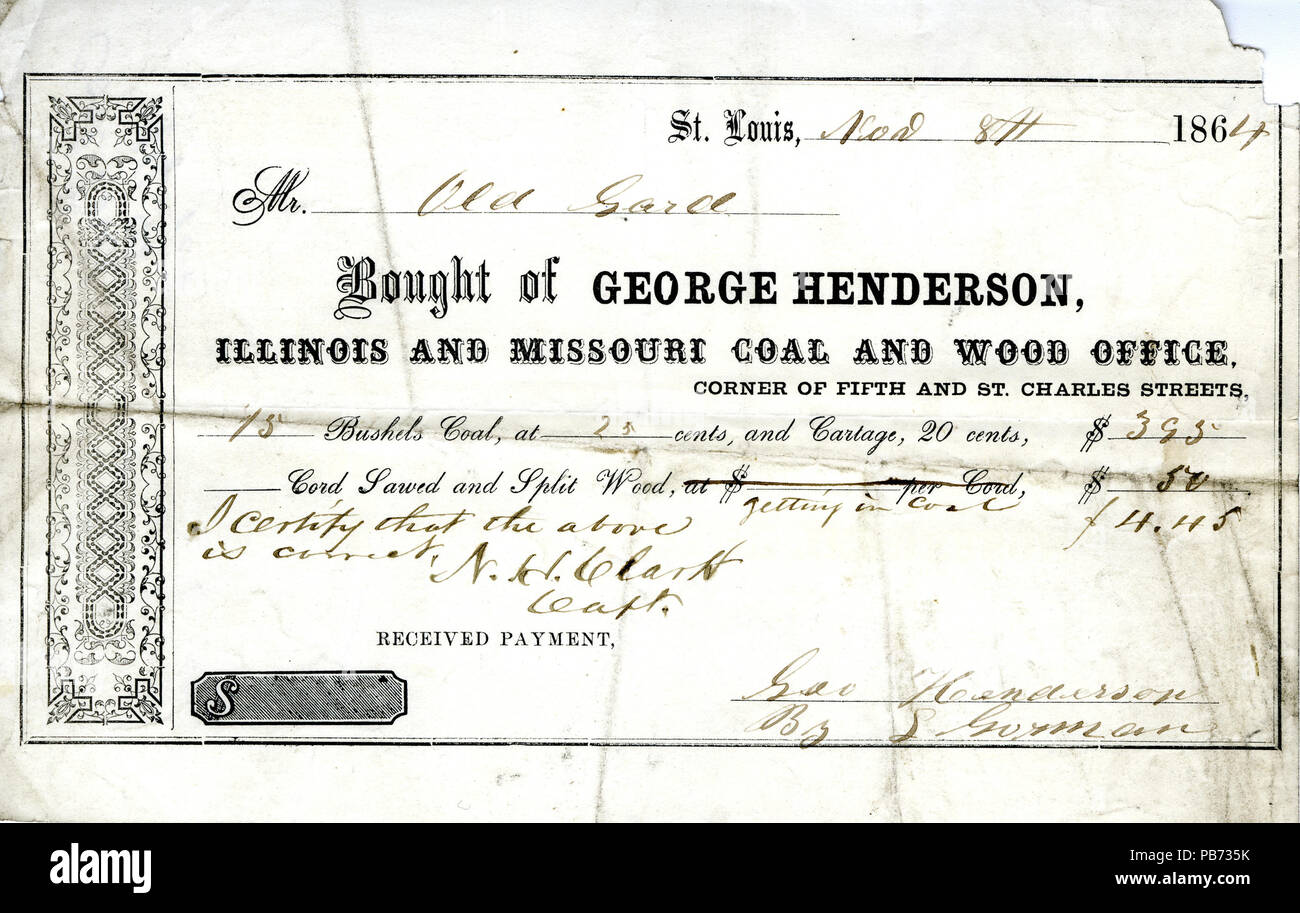 St. Louis, Nod 8th 1864
Mr. Old Gard
Bought of GEORGE HENDERSON,
ILLINOIS AND MISSOURI COAL AND WOOD OFFICE,
CORNER OF FIFTH AND ST. CHARLES STREETS,
15 Bushels Coal, at 25 cents, and Cartage, 20 cents, $ 395
Cord Sawed and Split Wood, at $ per Cord, $ 50
getting in Coal
$4.45
I certify that the above
is correct.
N. H. Clark
Capt.
RECEIVED PAYMENT,
$
Geo Henderson
By S Gorman
alamy
alamy
Image ID: PB735K
www.alamy.com